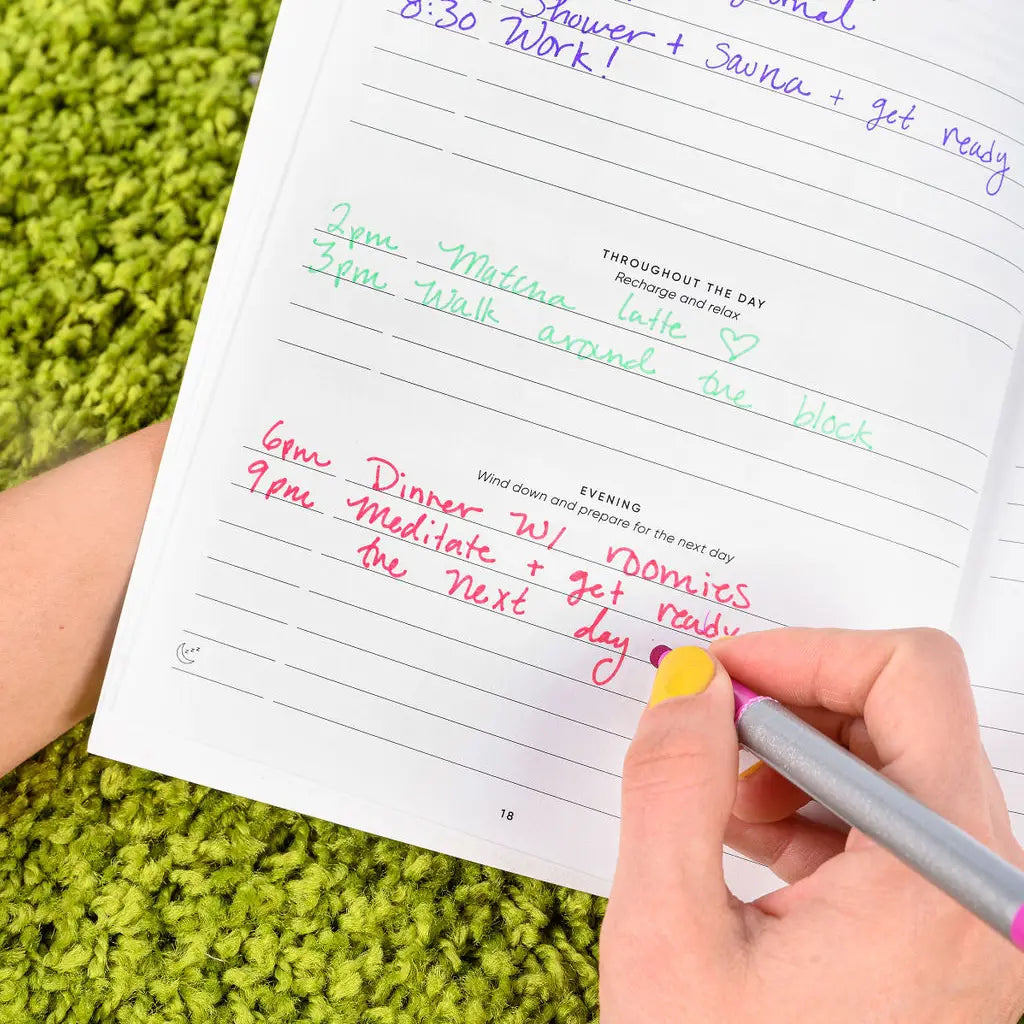 Shower + Sauna + get ready
8:30 Work!
THROUGHOUT THE DAY
Recharge and relax
2pm Matcha latte ♡
3pm Walk around the block
EVENING
Wind down and prepare for the next day
6pm Dinner w/ roomies
9pm Meditate + get ready
the next day
zzz
18